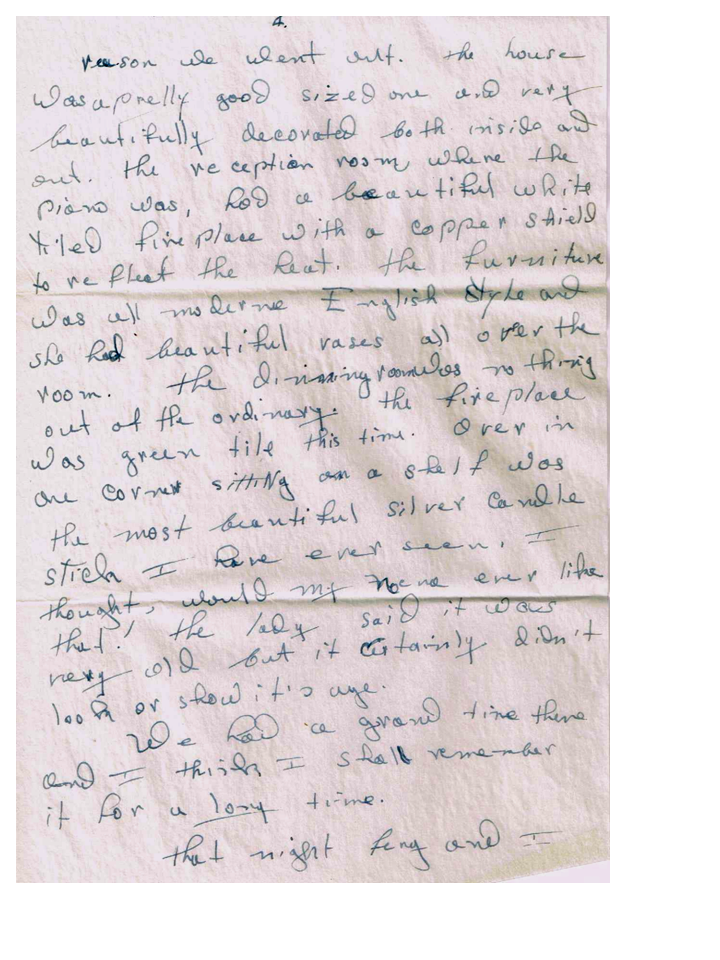 4.
reason we went out. the house
was a pretty good sized one and very
beautifully decorated both inside and
out. the reception room where the
piano was, had a beautiful white
tiled fireplace with a copper shield
to reflect the heat. the furniture
was all moderne English Style and
she had beautiful vases all over the
room. the dinning room was nothing
out of the ordinary. the fireplace
was green tile this time. Over in
one corner sitting on a shelf was
the most beautiful silver candle
stick I have ever seen. I
thought, would my ever like
that! the lady said it was
very old but it certainly didn't
look or show it's age.
We had a grand time there
and I think I shall remember
it for a long time.
that night and I